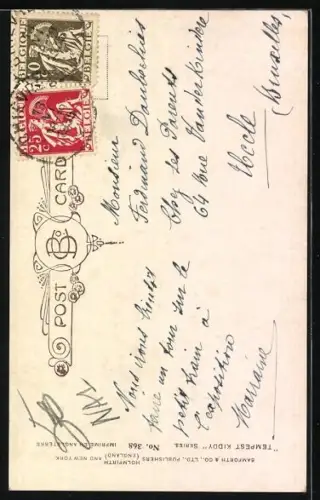 BELGIQUE
10
c
BELGIE
BELGIQUE
25
c
BELGIE
POST CARD
B&Co
Monsieur
Ferdinand
Chez les Parents
64 Rue Vanderkindere
Uccle
(Bruxelles)
Nous irons bientôt
faire un tour sur le
petit train à
l'exposition
Marraine
"TEMPEST KIDDY" SERIES. No. 368
BAMFORTH & CO., LTD., PUBLISHERS HOLMFIRTH (ENGLAND) AND NEW YORK
IMPRIMÉ EN ANGLETERRE